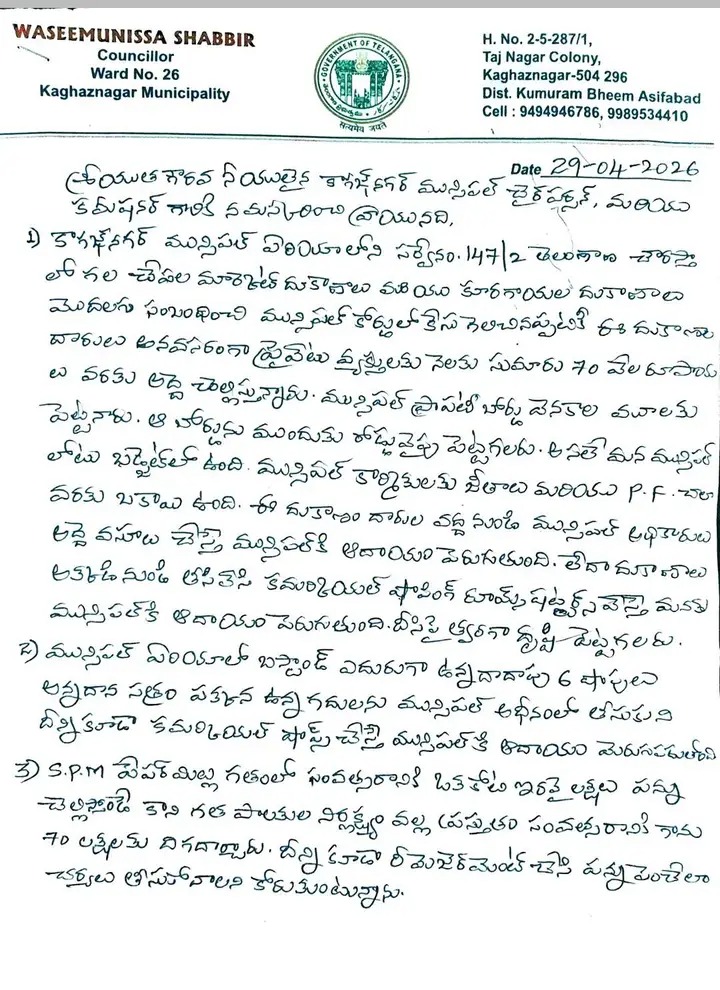 WASEEMUNISSA SHABBIR
Councillor
Ward No. 26
Kaghaznagar Municipality
GOVERNMENT OF TELANGANA
सत्यमेव जयते
H. No. 2-5-287/1,
Taj Nagar Colony,
Kaghaznagar-504 296
Dist. Kumuram Bheem Asifabad
Cell : 9494946786, 9989534410
Date 29-04-2026
శ్రీయుత గౌరవ నీయులైన కాగజ్‌నగర్ మున్సిపల్ చైర్‌పర్సన్, మరియు
కమీషనర్ గారికి నమస్కరించి వ్రాయునది,
1) కాగజ్‌నగర్ మున్సిపల్ ఏరియాలోని సర్వేనం. 147/2 తెలంగాణ చౌరస్తా
లో గల చేపల మార్కెట్ దుకాణాలు మరియు కూరగాయల దుకాణాలు
మొదలగు సంబంధించి మున్సిపల్ కోర్టులో కేసు గెలిచినప్పటికీ ఈ దుకాణ
దారులు అనవసరంగా ప్రైవేటు వ్యక్తులకు నెలకు సుమారు 70 వేల రూపాయ
ల వరకు అద్దె చెల్లిస్తున్నారు. మున్సిపల్ ప్రాపర్టీ బోర్డు వెనకాల
పెట్టినారు. ఆ బోర్డును ముందుకు రోడ్డువైపు పెట్టగలరు. అసలే మన మున్సిపల్
లోటు బడ్జెట్‌లో ఉంది. మున్సిపల్ కార్మికులకు జీతాలు మరియు P.F. చాలా
వరకు బకాయి ఉంది. ఈ దుకాణం దారుల వద్ద నుండి మున్సిపల్ అధికారులు
అద్దె వసూలు చేస్తే మున్సిపల్‌కి ఆదాయం పెరుగుతుంది. లేదా దుకాణాలు
అక్కడి నుండి తీసివేసి కమర్షియల్ షాపింగ్ రూమ్స్ షట్టర్స్ వేస్తే మనకు
మున్సిపల్‌కి ఆదాయం పెరుగుతుంది. దీనిపై త్వరగా దృష్టి పెట్టగలరు.
2) మున్సిపల్ ఏరియాలో బస్టాండ్ ఎదురుగా ఉన్న దాదాపు 6 షాపులు
అన్నదాన సత్రం పక్కన ఉన్న గదులను మున్సిపల్ అధీనంలో తీసుకుని
దీన్ని కూడా కమర్షియల్ షాప్స్ చేస్తే మున్సిపల్‌కి ఆదాయం మెరుగుపడుతుంది
3) S.P.M పేపర్ మిల్లు గతంలో సంవత్సరానికి ఒక కోటి ఇరవై లక్షలు పన్ను
చెల్లిస్తోండే కాని గత పాలకుల నిర్లక్ష్యం వల్ల ప్రస్తుతం సంవత్సరానికి గాను
70 లక్షలకు దిగదార్చారు. దీన్ని కూడా రీమెజర్‌మెంట్ చేసి పన్ను పెంచేలా
చర్యలు తీసుకోవాలని కోరుకుంటున్నాను.